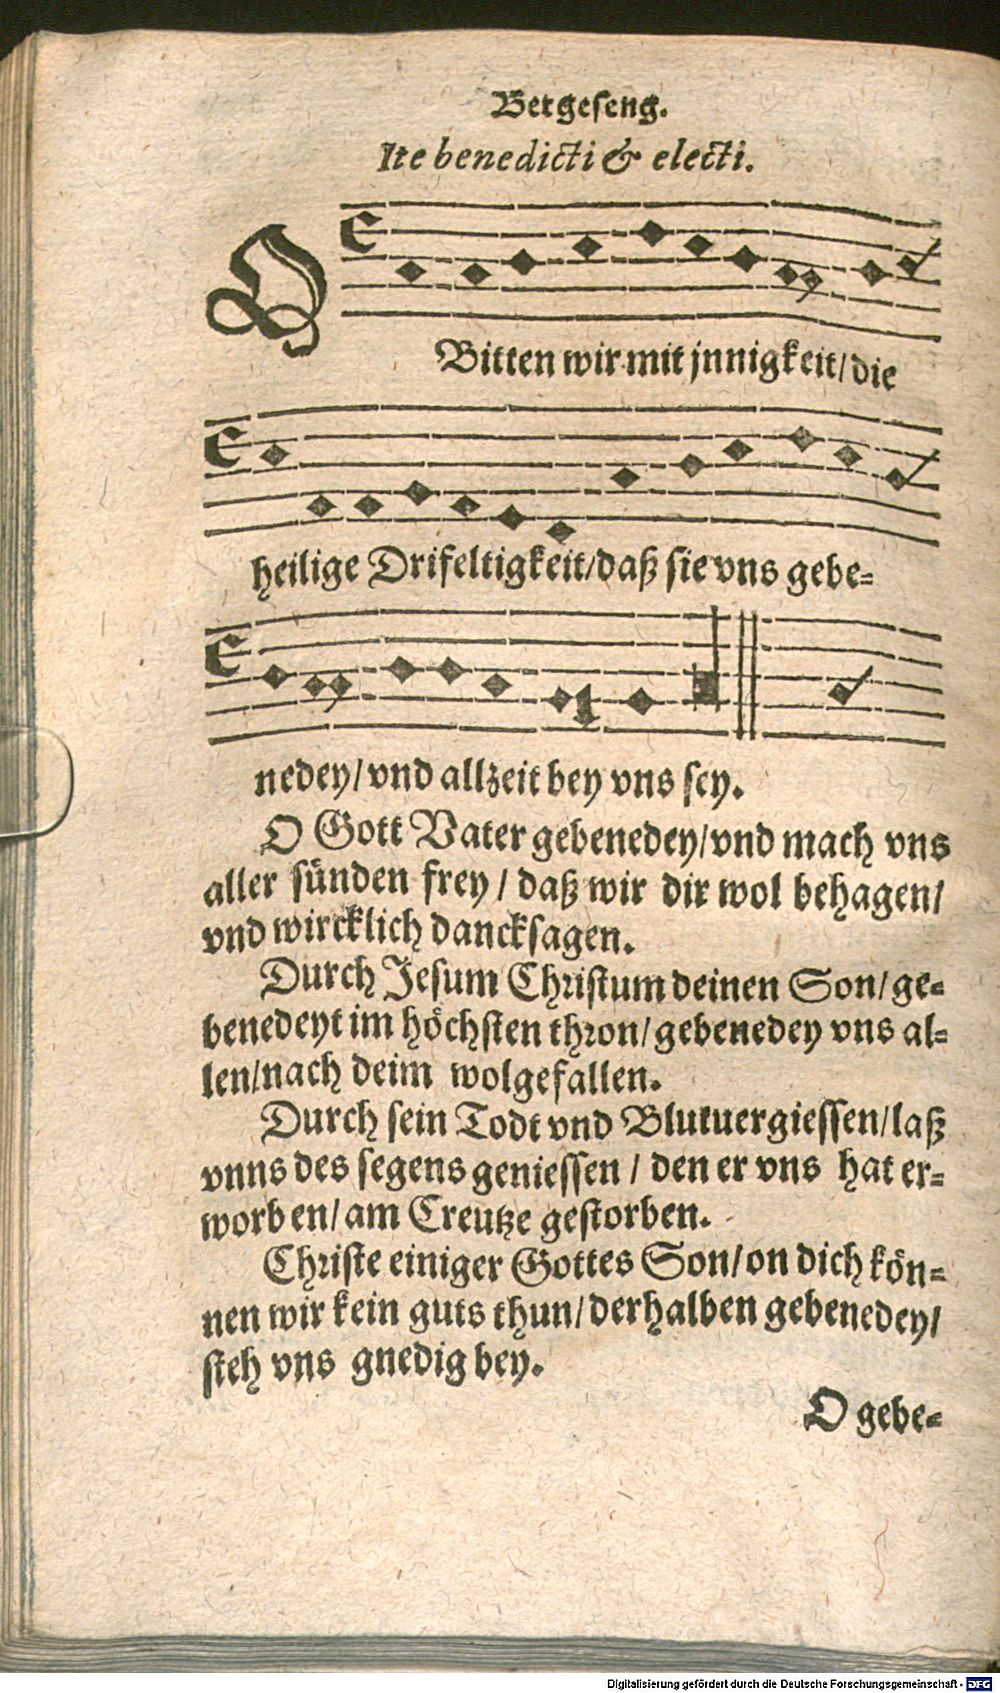 Betgeseng.
Ite benedicti & electi.
O
Bitten wir mit jnnigkeit/die
heilige Drifeltigkeit/daß sie vns gebe-
nedey/vnd allzeit bey vns sey.
O Gott Vater gebenedey/vnd mach vns
aller sünden frey / daß wir dir wol behagen/
vnd wircklich dancksagen.
Durch Jesum Christum deinen Son/ge-
benedeyt im höchsten thron/gebenedey vns al-
len/nach deim wolgefallen.
Durch sein Todt vnd Blutuergiessen/laß
vnns des segens geniessen / den er vns hat er-
worben/am Creutze gestorben.
Christe einiger Gottes Son/on dich kön-
nen wir kein guts thun/derhalben gebenedey/
steh vns gnedig bey.
O gebe-
Digitalisierung gefördert durch die Deutsche Forschungsgemeinschaft - DFG